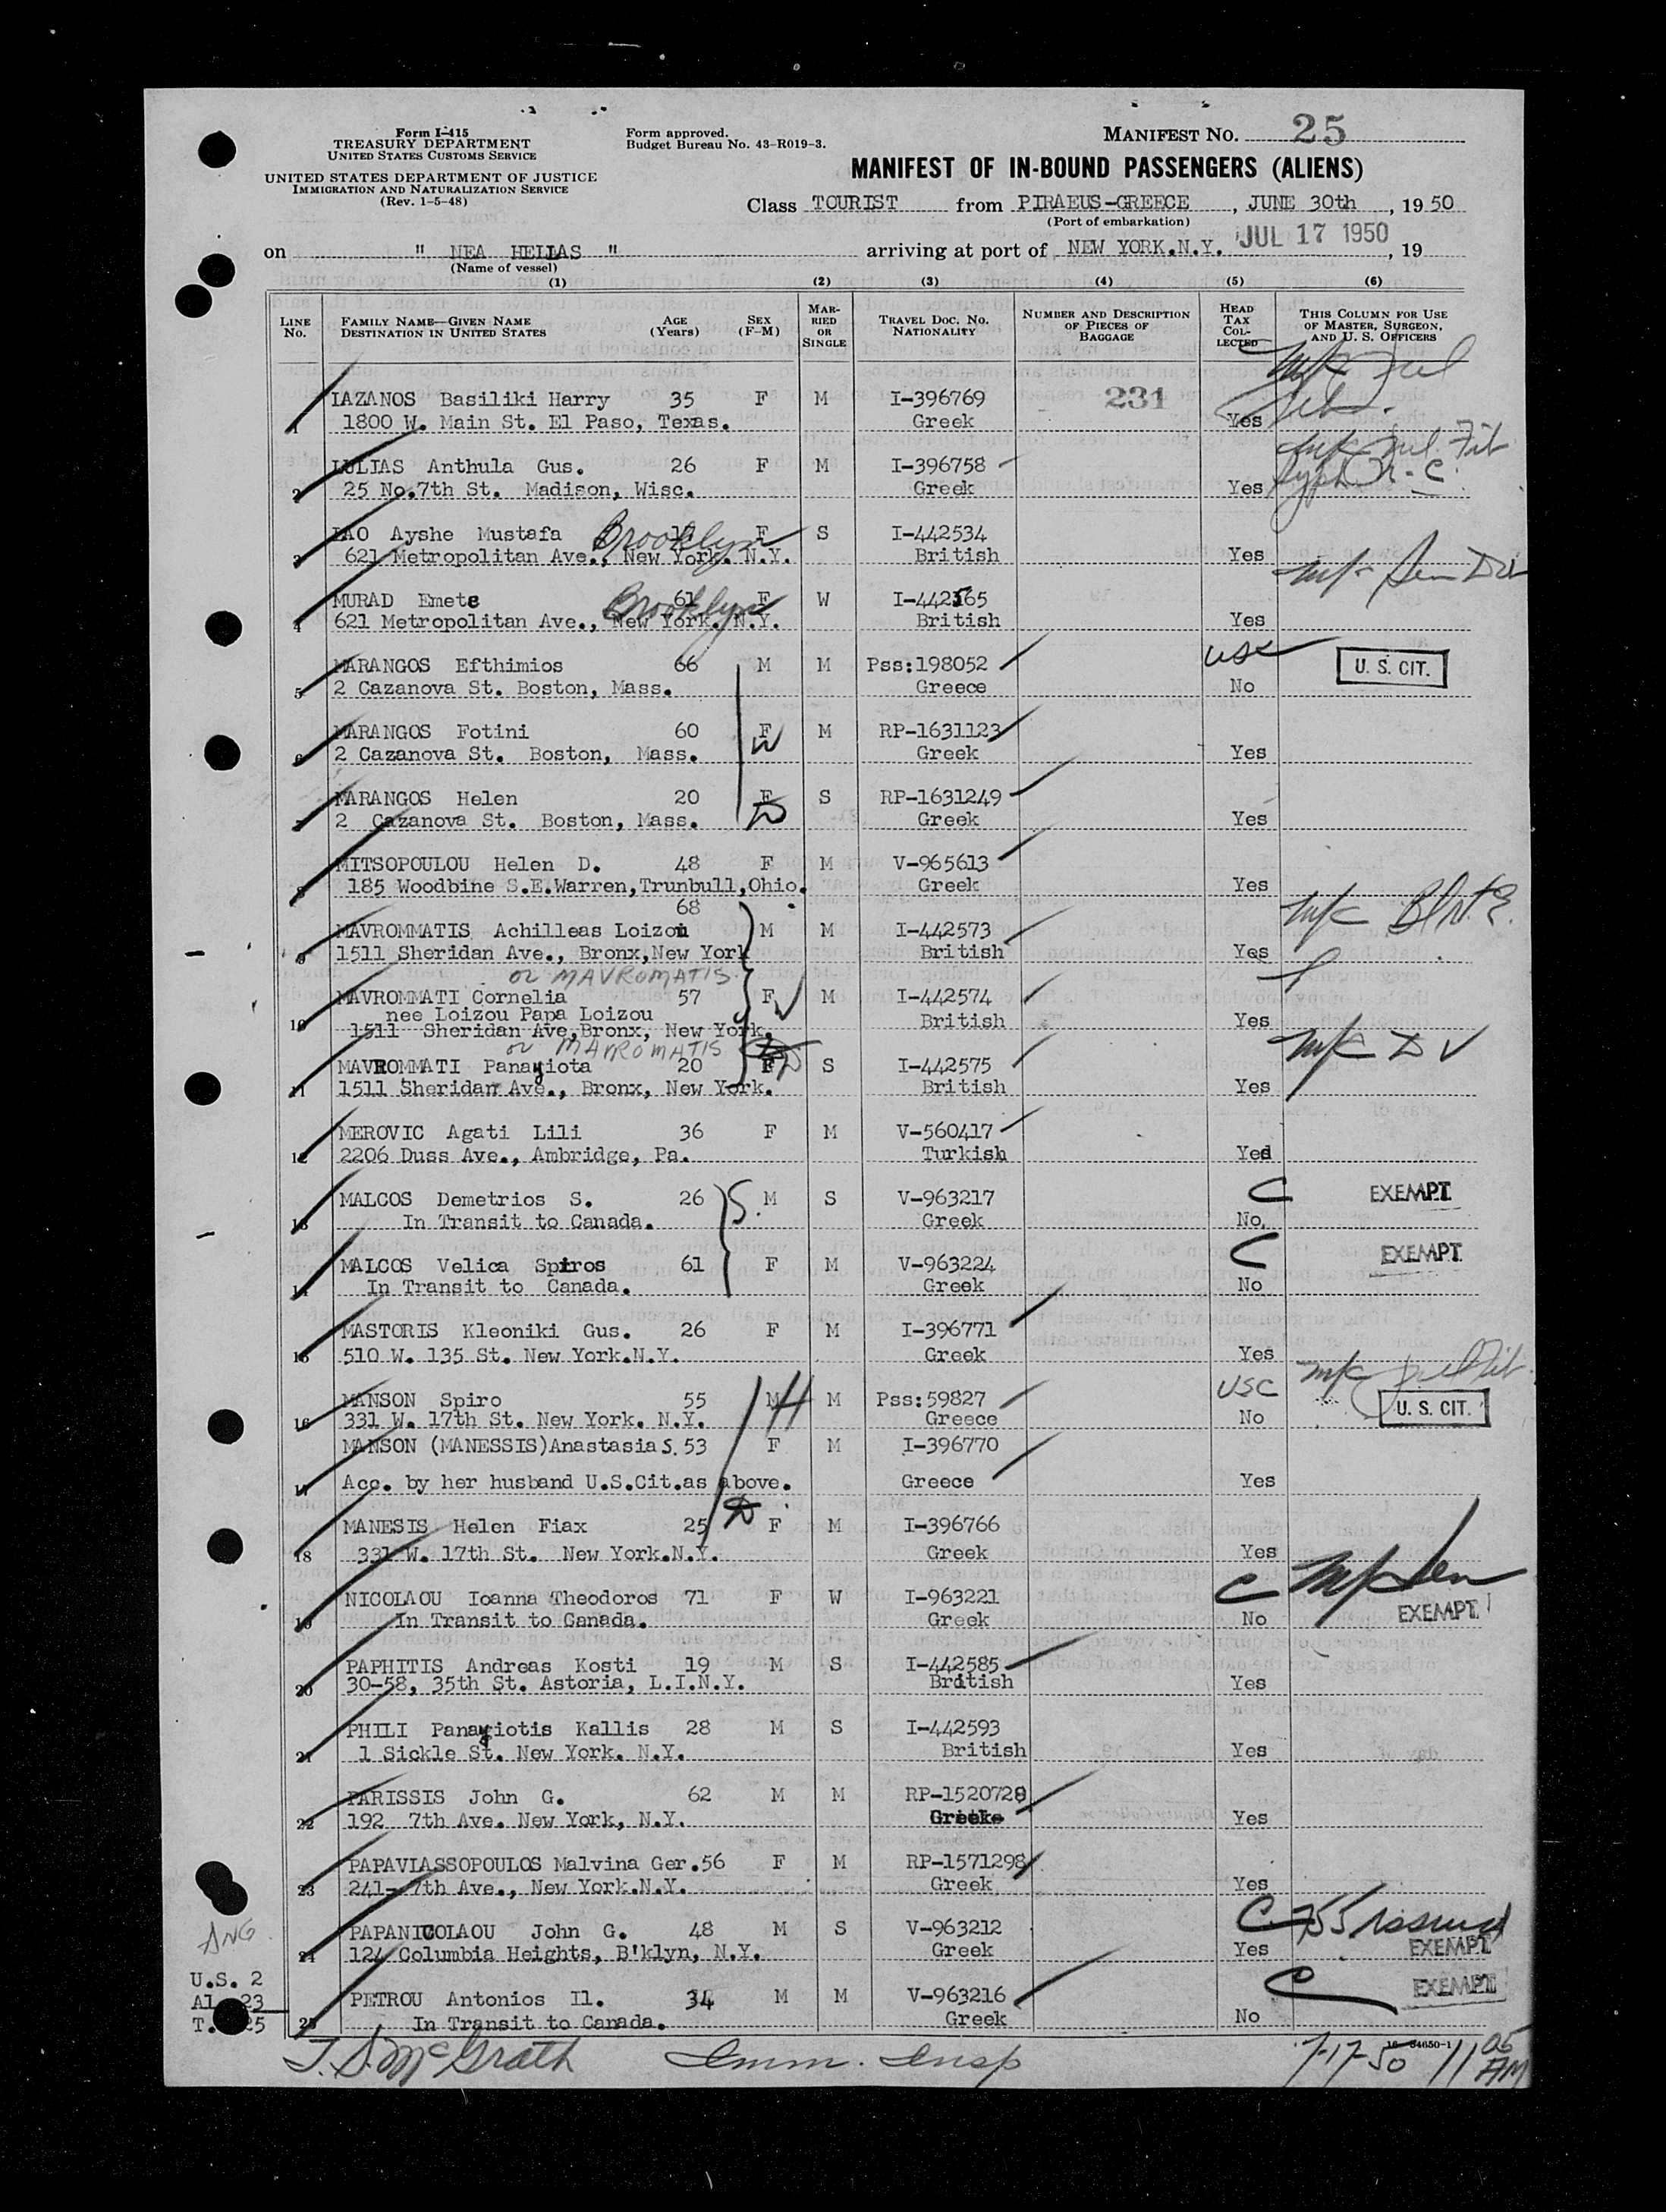 Form I-415
TREASURY DEPARTMENT
UNITED STATES CUSTOMS SERVICE
UNITED STATES DEPARTMENT OF JUSTICE
IMMIGRATION AND NATURALIZATION SERVICE
(Rev. 1-5-48)
Form approved.
Budget Bureau No. 43-R019-3.
MANIFEST NO. 25
MANIFEST OF IN-BOUND PASSENGERS (ALIENS)
Class TOURIST from PIRAEUS-GREECE, JUNE 30th, 19 50
(Port of embarkation)
on " NEA HELLAS " arriving at port of NEW YORK.N.Y. JUL 17 1950, 19
(Name of vessel)
(1) (2) (3) (4) (5) (6)
LINE No. FAMILY NAME—GIVEN NAME DESTINATION IN UNITED STATES AGE (Years) SEX (F-M) MARRIED OR SINGLE TRAVEL DOC. NO. NATIONALITY NUMBER AND DESCRIPTION OF PIECES OF BAGGAGE HEAD TAX COLLECTED THIS COLUMN FOR USE OF MASTER, SURGEON, AND U. S. OFFICERS
LAZANOS Basiliki Harry 35 F M I-396769 231
1 1800 W. Main St. El Paso, Texas. Greek Yes
LULIAS Anthula Gus. 26 F M I-396758
2 25 No.7th St. Madison, Wisc. Greek Yes
LAO Ayshe Mustafa Brooklyn F S I-442534
3 621 Metropolitan Ave., New York. N.Y. British Yes
MURAD Emete Brooklyn 61 F W I-442565
4 621 Metropolitan Ave., New York. N.Y. British Yes
MARANGOS Efthimios 66 M M Pss:198052 USC U. S. CIT.
5 2 Cazanova St. Boston, Mass. Greece No
MARANGOS Fotini 60 F W M RP-1631123
6 2 Cazanova St. Boston, Mass. Greek Yes
MARANGOS Helen 20 F D S RP-1631249
7 2 Cazanova St. Boston, Mass. Greek Yes
MITSOPOULOU Helen D. 48 F M V-965613
8 185 Woodbine S.E.Warren,Trunbull,Ohio. Greek Yes
68
MAVROMMATIS Achilleas Loizou M M I-442573
9 1511 Sheridan Ave., Bronx,New York British Yes
or MAVROMATIS
MAVROMMATI Cornelia 57 F W M I-442574
nee Loizou Papa Loizou
10 1511 Sheridan Ave,Bronx, New York. British Yes
or MAVROMATIS
MAVROMMATI Panayiota 20 F D S I-442575
11 1511 Sheridan Ave., Bronx, New York. British Yes
MEROVIC Agati Lili 36 F M V-560417
12 2206 Duss Ave., Ambridge, Pa. Turkish Yes
MALCOS Demetrios S. 26 S. M S V-963217 C EXEMPT
13 In Transit to Canada. Greek No.
MALCOS Velica Spiros 61 F M V-963224 C EXEMPT
14 In Transit to Canada. Greek No
MASTORIS Kleoniki Gus. 26 F M I-396771
15 510 W. 135 St. New York.N.Y. Greek Yes
MANSON Spiro 55 M H M Pss:59827 USC U. S. CIT.
16 331 W. 17th St. New York. N.Y. Greece No
MANSON (MANESSIS)Anastasia S. 53 F M I-396770
17 Acc. by her husband U.S.Cit.as above. Greece Yes
MANESIS Helen Fiax 25 D F M I-396766
18 331 W. 17th St. New York.N.Y. Greek Yes
NICOLAOU Ioanna Theodoros 71 F W I-963221 C EXEMPT
19 In Transit to Canada. Greek No
PAPHITIS Andreas Kosti 19 M S I-442585
20 30-58, 35th St. Astoria, L.I.N.Y. British Yes
PHILI Panayiotis Kallis 28 M S I-442593
21 1 Sickle St. New York. N.Y. British Yes
PARISSIS John G. 62 M M RP-1520728
22 192 7th Ave. New York, N.Y. Greek Yes
PAPAVLASSOPOULOS Malvina Ger.56 F M RP-1571298
23 241- 7th Ave., New York.N.Y. Greek Yes
ANG
PAPANICOLAOU John G. 48 M S V-963212 C-755 issued
24 124 Columbia Heights, B'klyn, N.Y. Greek Yes EXEMPT
U.S. 2
PETROU Antonios Il. 34 M M V-963216 C EXEMPT
Al 23
25 In Transit to Canada. Greek No
T. 25
16-54650-1
T. S. McGrath Imm. Insp 7-17-50 11 05 AM